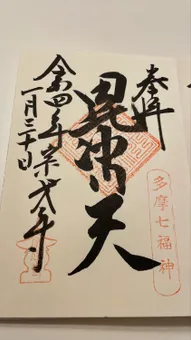 奉拝
毘沙門天
令和四年 宗弐寺
一月三十日
多摩七福神